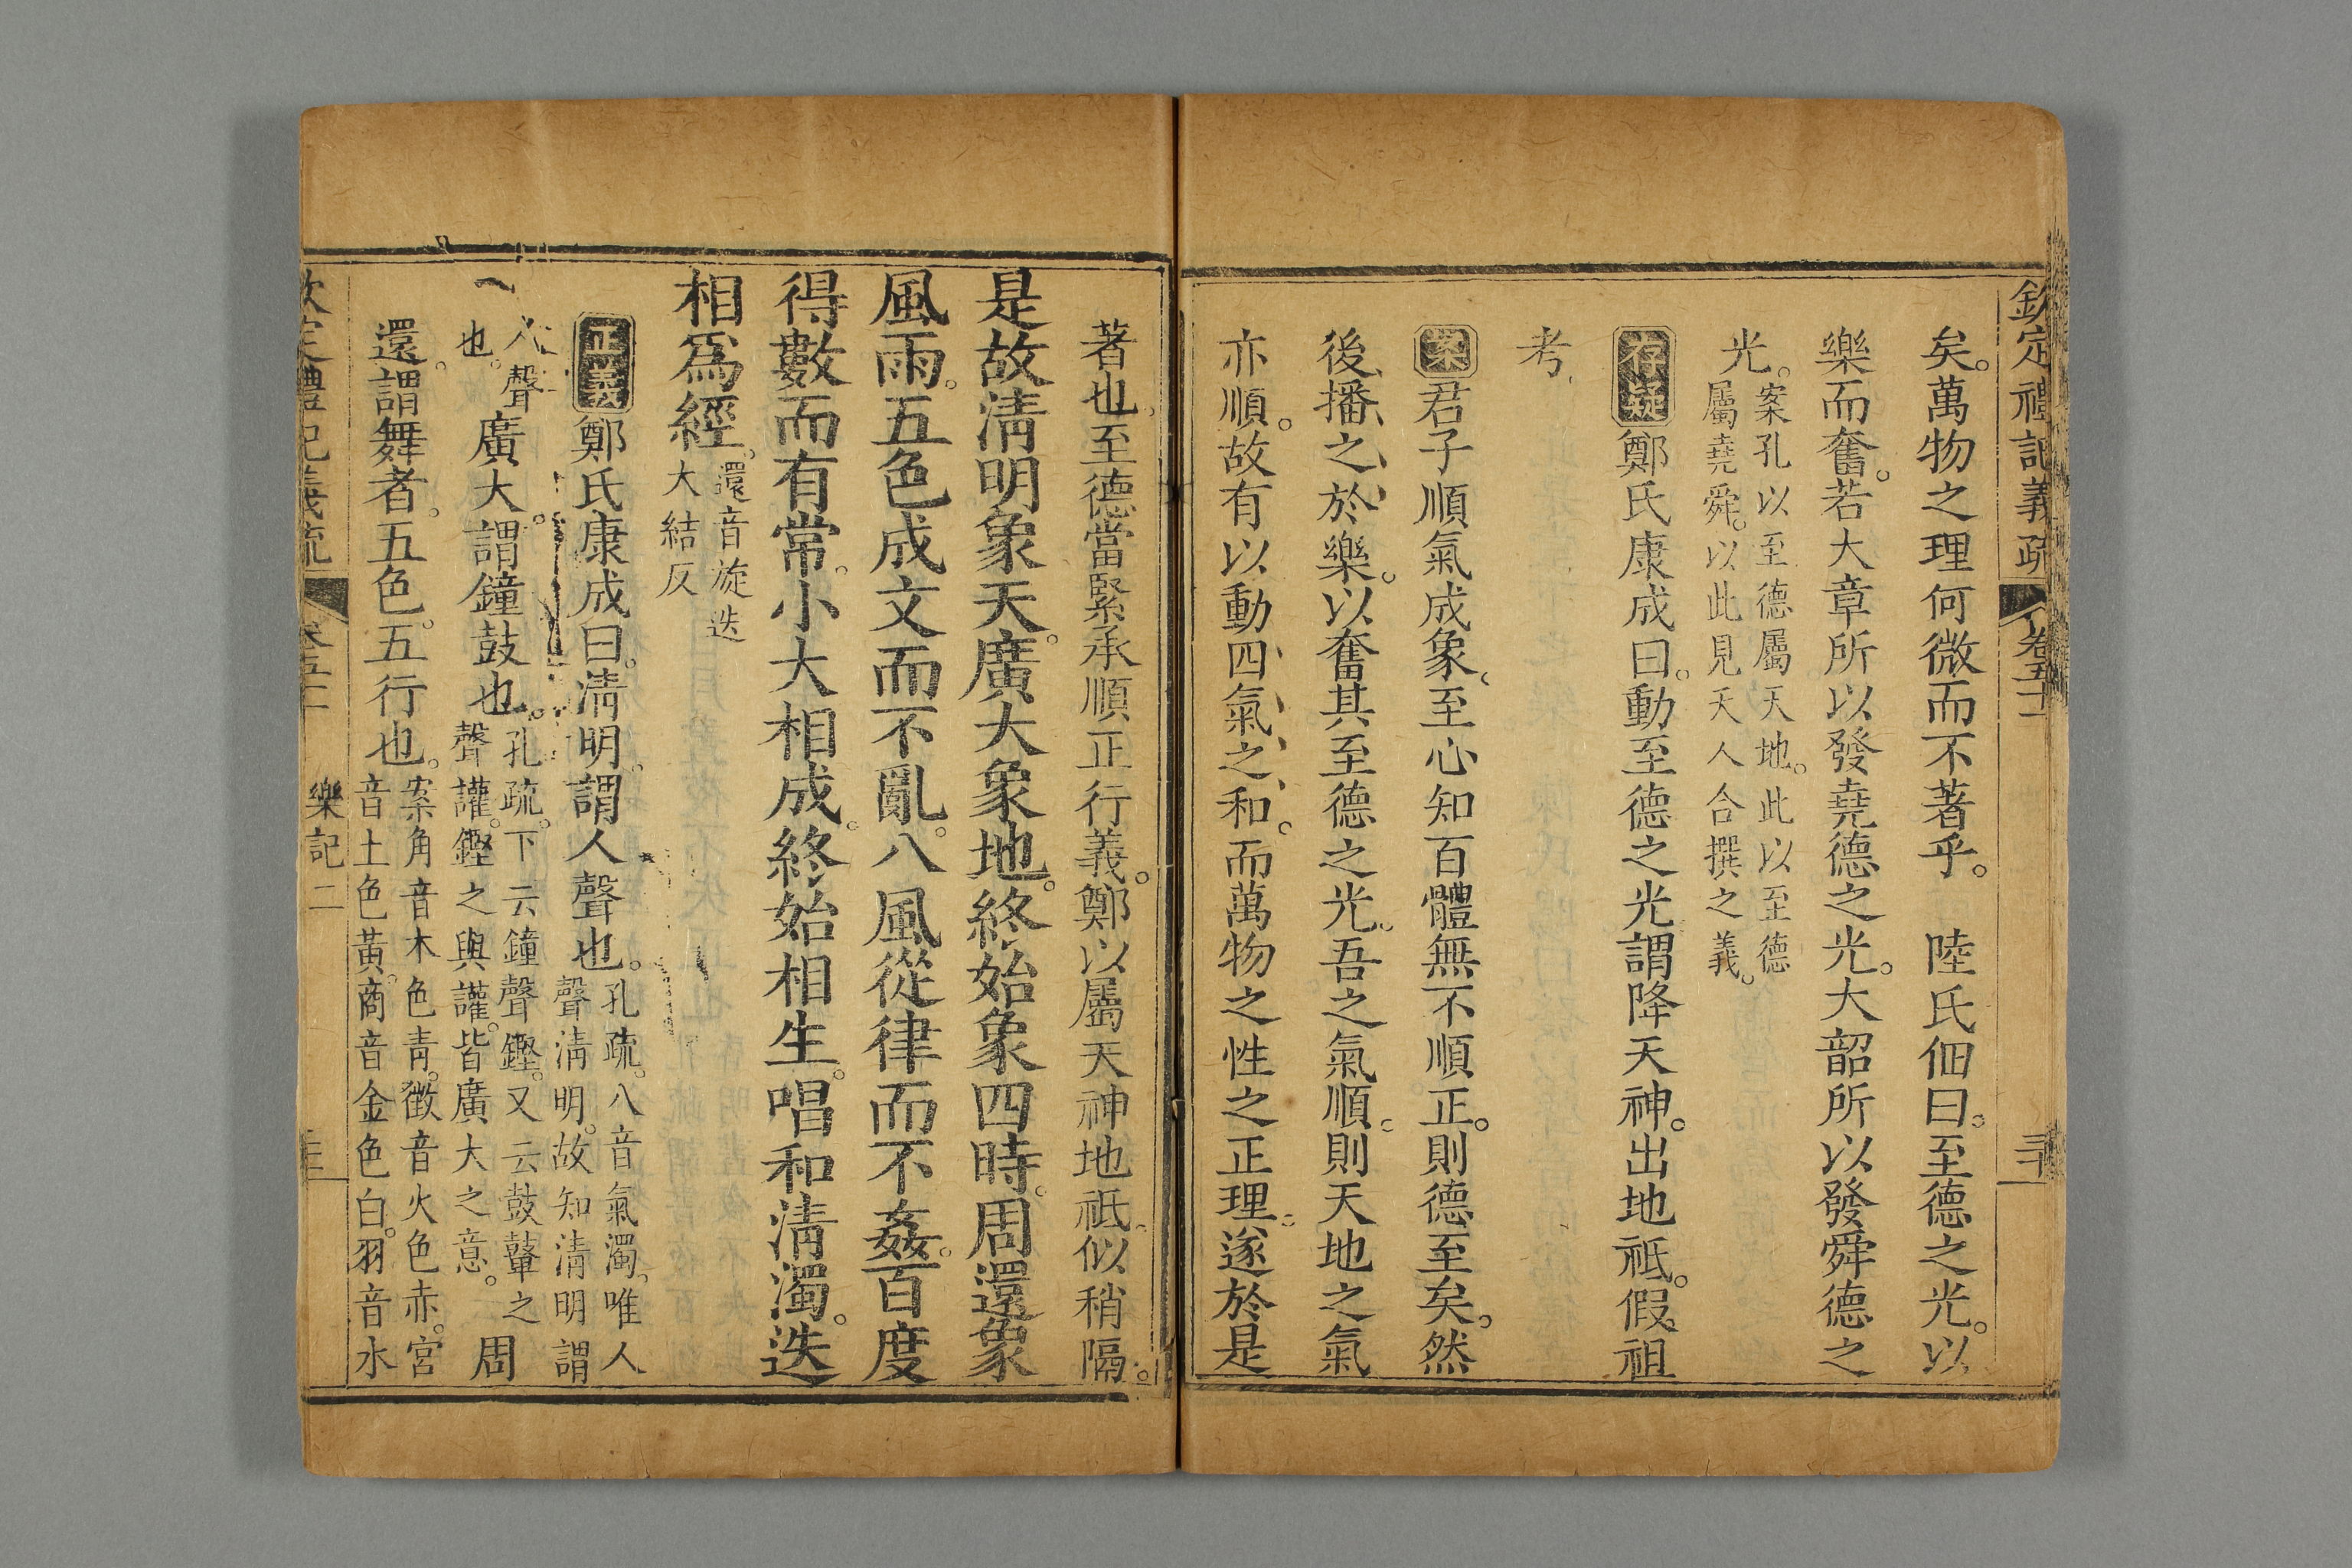 欽定禮記義疏 卷五十一
矣。萬物之理何微而不著乎。 陸氏佃曰。至德之光。以
樂而奮。若大章所以發堯德之光。大韶所以發舜德之
光。案孔以至德屬天地。此以至德
屬堯舜。以此見天人合撰之義。
存疑 鄭氏康成曰。動至德之光謂降天神。出地祇。假祖
考、
案 君子順氣成象、至心知百體無不順正。則德至矣。然
後播之於樂。以奮其至德之光。吾之氣順。則天地之氣
亦順。故有以動四氣之和。而萬物之性之正理。遂於是
著也。至德當緊承順正行義。鄭以屬天神地祇。似稍隔。
是故淸明象天。廣大象地。終始象四時。周還象
風雨。五色成文而不亂。八風從律而不姦。百度
得數而有常。小大相成。終始相生。唱和淸濁。迭
相爲經。還音旋迭
大結反
正義 鄭氏康成曰。淸明。謂人聲也。孔疏。八音氣濁。唯人
聲淸明。故知淸明謂
人聲
也。廣大。謂鐘鼓也。孔疏。下云鐘聲鏗。又云鼓鼙之
聲讙。鏗之與讙。皆廣大之意。周
還。謂舞者。五色。五行也。案角音木色靑。徵音火色赤。宮
音土色黃。商音金色白。羽音水
樂記二